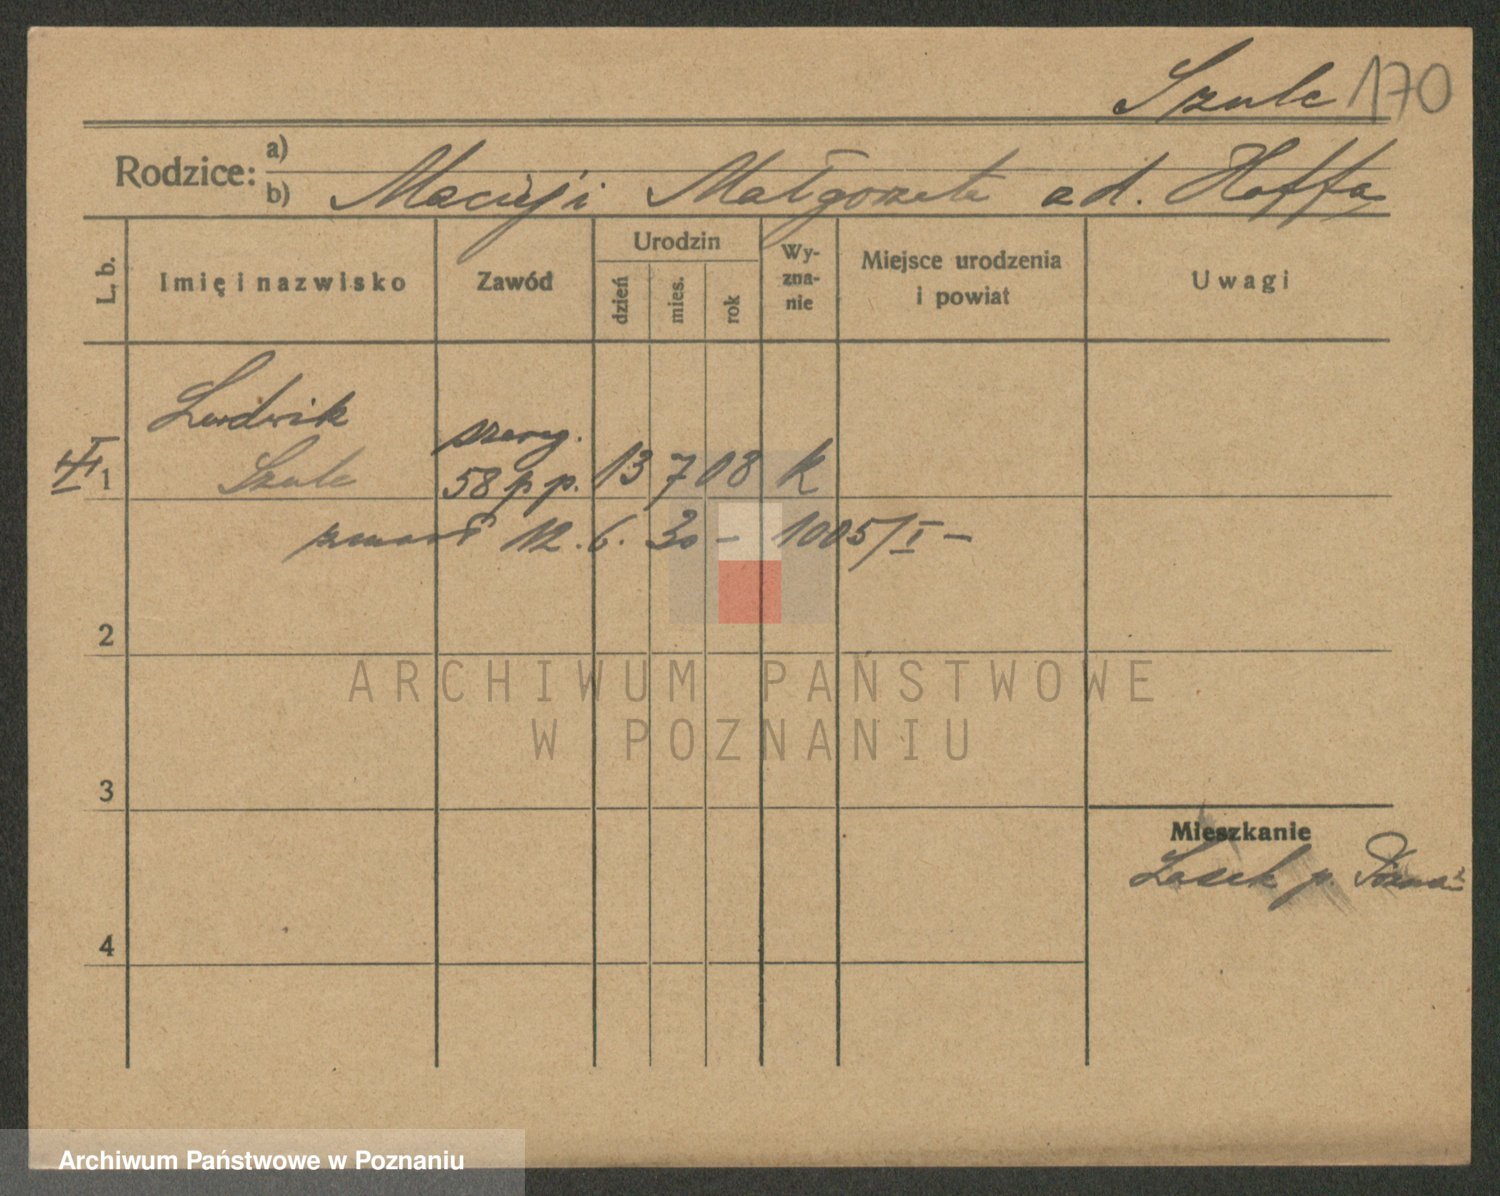 Szulc 170
Rodzice: a)
b) Maciej i Małgorzata od. Hoffa
L. b.
Imię i nazwisko
Zawód
Urodzin
dzień
mies.
rok
Wy-
zna-
nie
Miejsce urodzenia
i powiat
Uwagi
Ludwik
Szulc
szereg.
1 58 p p. 13 7 08 k
zmarł 12. 6. 30 – 1005/I –
2
3
4
Mieszkanie
Lasek p. Poznań
ARCHIWUM PAŃSTWOWE
W POZNANIU
Archiwum Państwowe w Poznaniu